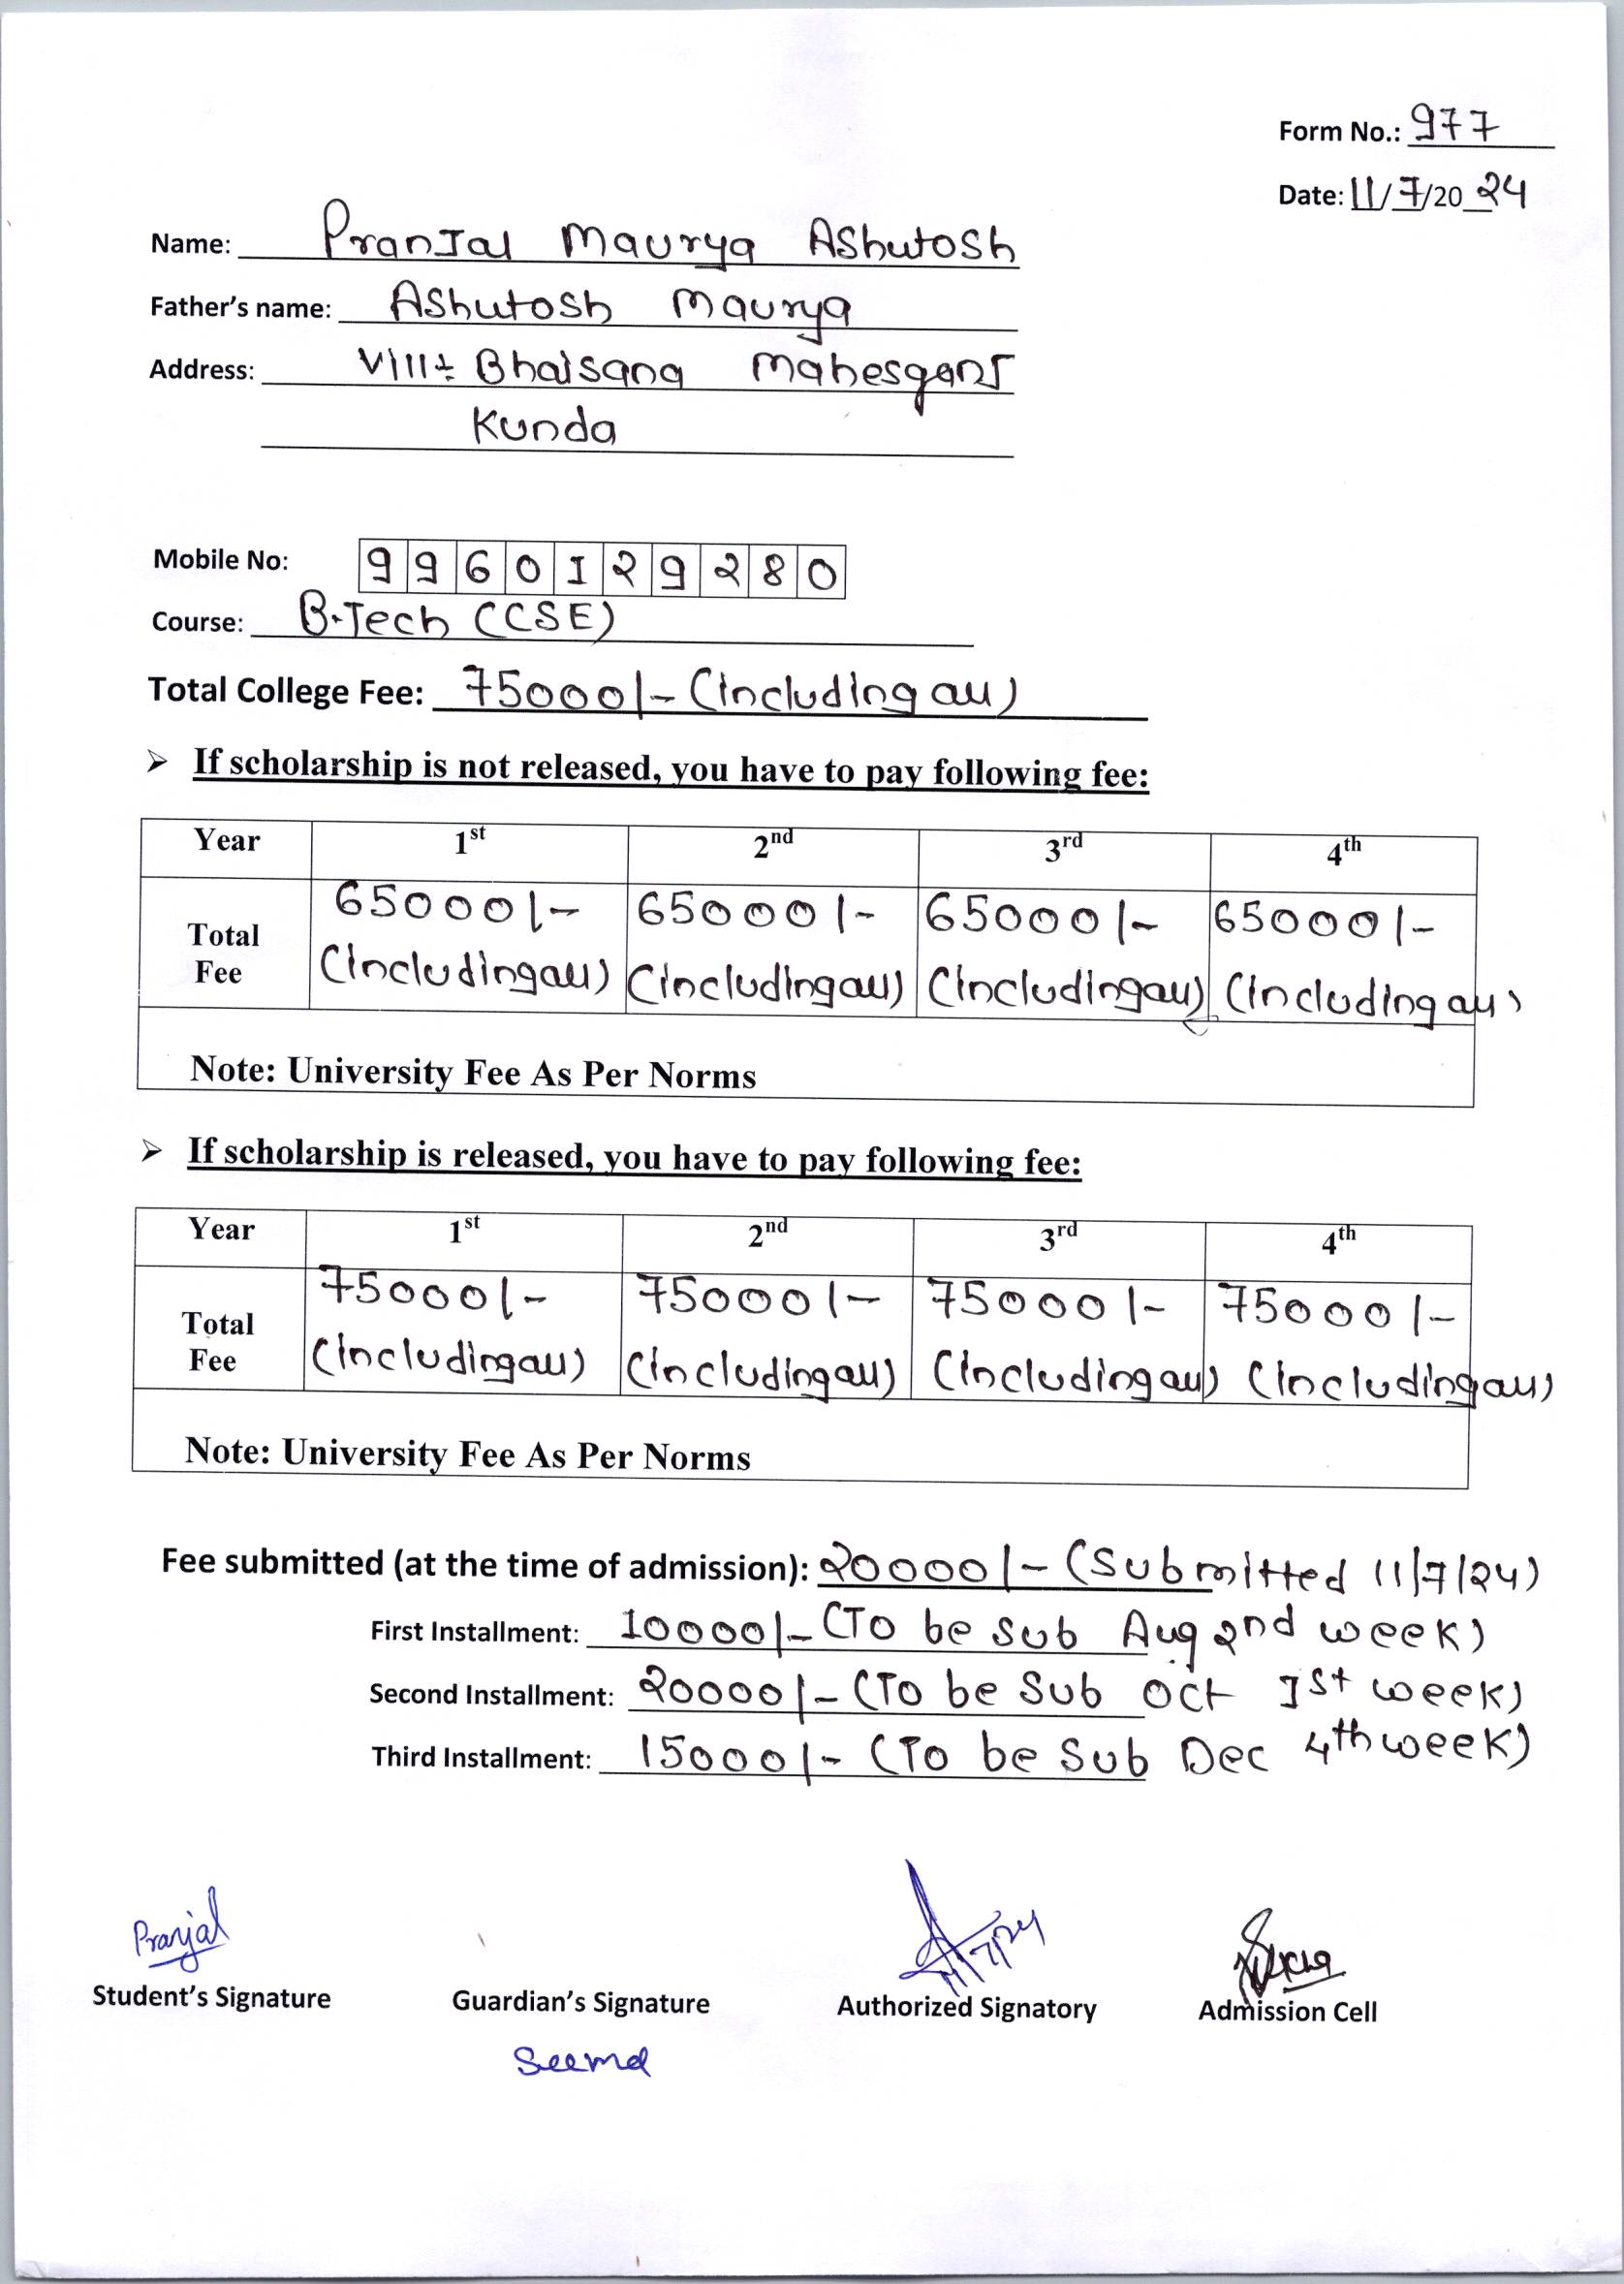 Form No.: 977
Date: 11/7/2024
Name: Pranjal Maurya Ashutosh
Father's name: Ashutosh Maurya
Address: Vill:- Bhaisana Mahesganj
Kunda
Mobile No: 9960129280
Course: B.Tech (CSE)
Total College Fee: 75000/- (including all)
➢ If scholarship is not released, you have to pay following fee:
Year 1st 2nd 3rd 4th
Total Fee 65000/- 65000/- 65000/- 65000/-
(including all) (including all) (including all) (including all)
Note: University Fee As Per Norms
➢ If scholarship is released, you have to pay following fee:
Year 1st 2nd 3rd 4th
Total Fee 75000/- 75000/- 75000/- 75000/-
(including all) (including all) (including all) (including all)
Note: University Fee As Per Norms
Fee submitted (at the time of admission): 20000/- (Submitted 11/7/24)
First Installment: 10000/- (To be sub Aug 2nd week)
Second Installment: 20000/- (To be sub Oct 1st week)
Third Installment: 15000/- (To be sub Dec 4th week)
Pranjal 11/7/24
Student's Signature Guardian's Signature Authorized Signatory Admission Cell
Seema